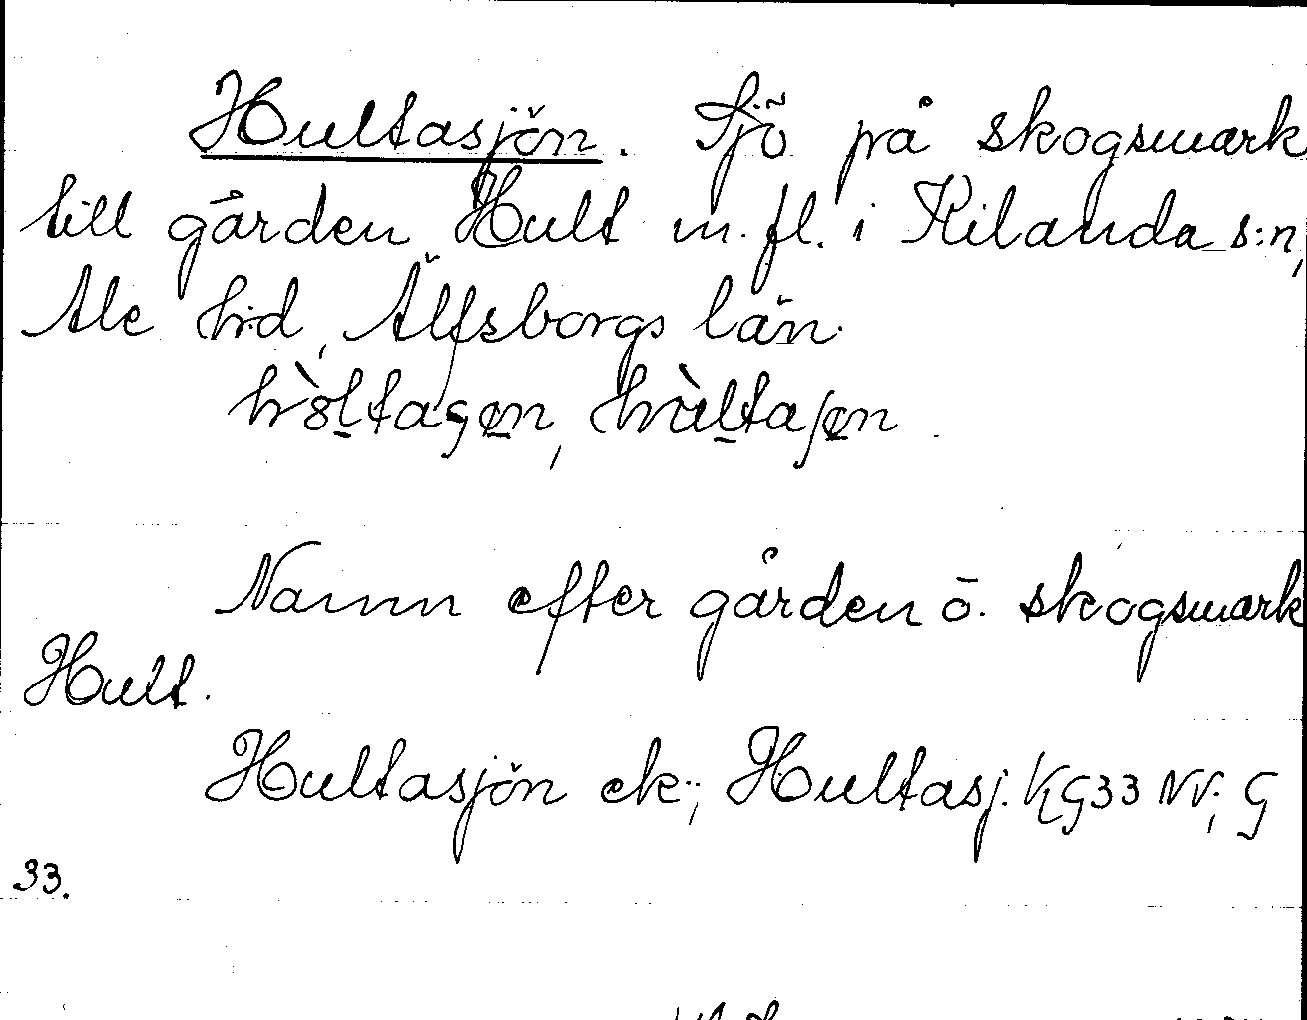 Hultasjön. Sjö på skogsmark
till gården Hult m. fl. i Kilanda s:n,
Ale h:d, Älfsborgs län.
Namn efter gården o. skogsmark
Hult.
Hultasjön ek.; Hultasj. KG33 NV; G
33.